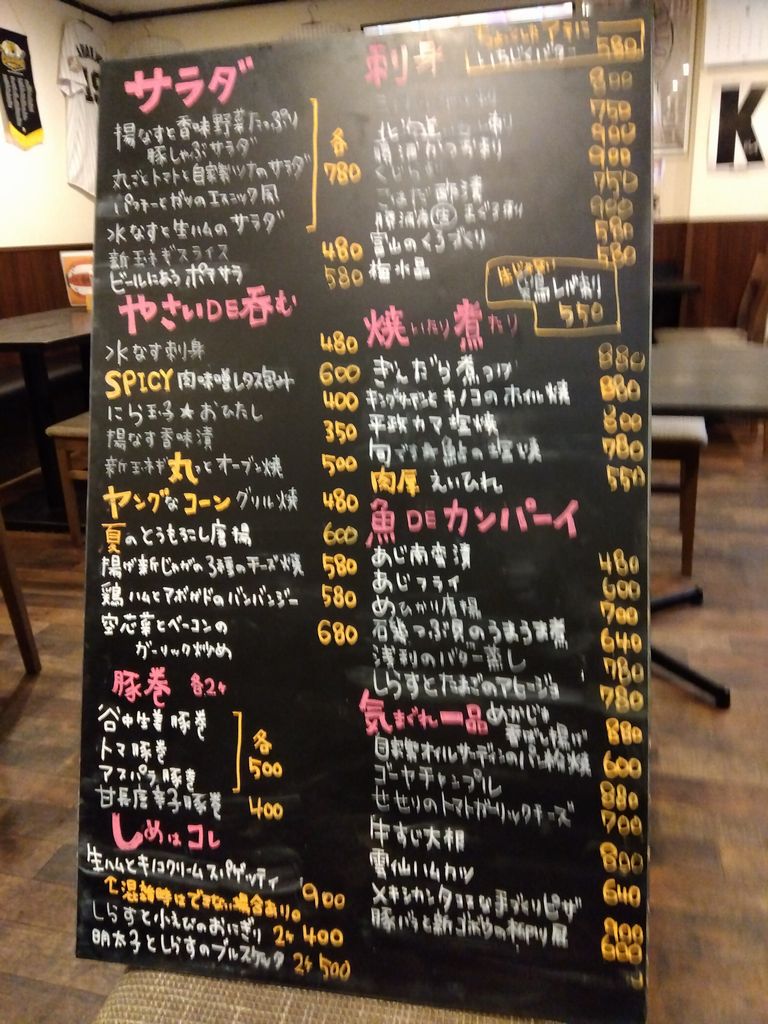 サラダ
揚なすと香味野菜たっぷり
豚しゃぶサラダ
丸ごとトマトと自家製ツナのサラダ
パクチーとガリのエスニック風
水なすと生ハムのサラダ
各
780
新玉ネギスライス 480
ビールにあう ポテサラ 580
やさいDE呑む
水なす刺身 480
SPICY 肉味噌レタス包み 600
にら玉子★おひたし 400
揚なす香味漬 350
新玉ネギ丸っとオーブン焼 500
ヤングなコーン グリル焼 480
夏のとうもろこし唐揚 600
揚げ新じゃがの3種のチーズ焼 580
鶏ハムとアボガドのバンバンジー 580
空芯菜とベーコンの
ガーリック炒め 680
豚巻 各2ヶ
谷中生姜豚巻
トマ豚巻
アスパラ豚巻
各
500
甘長唐辛子豚巻 400
しめはコレ
生ハムとキノコクリームスパゲッティ 900
混雑時はできない場合あり。
しらすと小えびのおにぎり 2ヶ 400
明太子としらすのブルスケッタ 2ヶ 500
刺身
いちじくバター 580
800
750
北海道 刺 900
900
くじら 750
こはだ酢漬 900
生 まぐろ刺 580
富山のくろづくり 580
梅水晶
550
焼いたり煮たり
ぎんだら煮つけ 880
キングサーモンとキノコのホイル焼 880
平政カマ塩焼 800
旬です 鮎の塩焼 780
肉厚 えいひれ 550
魚DEカンパーイ
あじ南蛮漬 480
あじフライ 600
めひかり唐揚 700
つぶ貝のうまうま煮 640
浅利のバター蒸し 780
しらすとたまごのアヒージョ 780
気まぐれ一品 めかじき
香ばし揚げ 880
自家製オイルサーディンのパン粉焼 600
ゴーヤチャンプル 880
せせりのトマトガーリックチーズ 700
牛すじ大根 800
雲仙ハムカツ 640
メキシカンタコスな手づくりピザ 900
豚バラと新ゴボウの柳川風 800
K